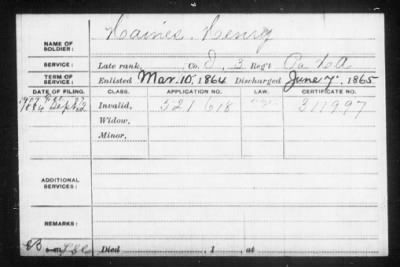 Haines, Henry
NAME OF SOLDIER:
SERVICE: Late rank, Co. D, 3 Reg't Pa HA
TERM OF SERVICE: Enlisted Mar. 10, 1864 Discharged June 7, 1865
DATE OF FILING. CLASS. APPLICATION NO. LAW. CERTIFICATE NO.
1884 Sept 2 Invalid, 521 618 311997
Widow,
Minor,
ADDITIONAL SERVICES:
REMARKS:
Died , 1 , at